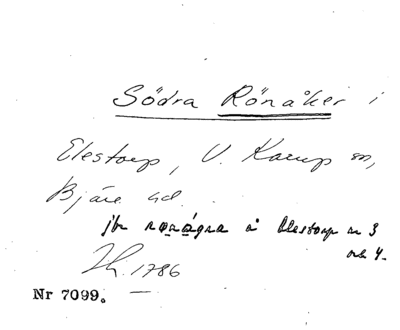 Södra Rönåker i
Elestorp, V. Karup sn,
Bjäre hd.
jfr å Elestorp nr 3
och 4.
1786
Nr 7099.